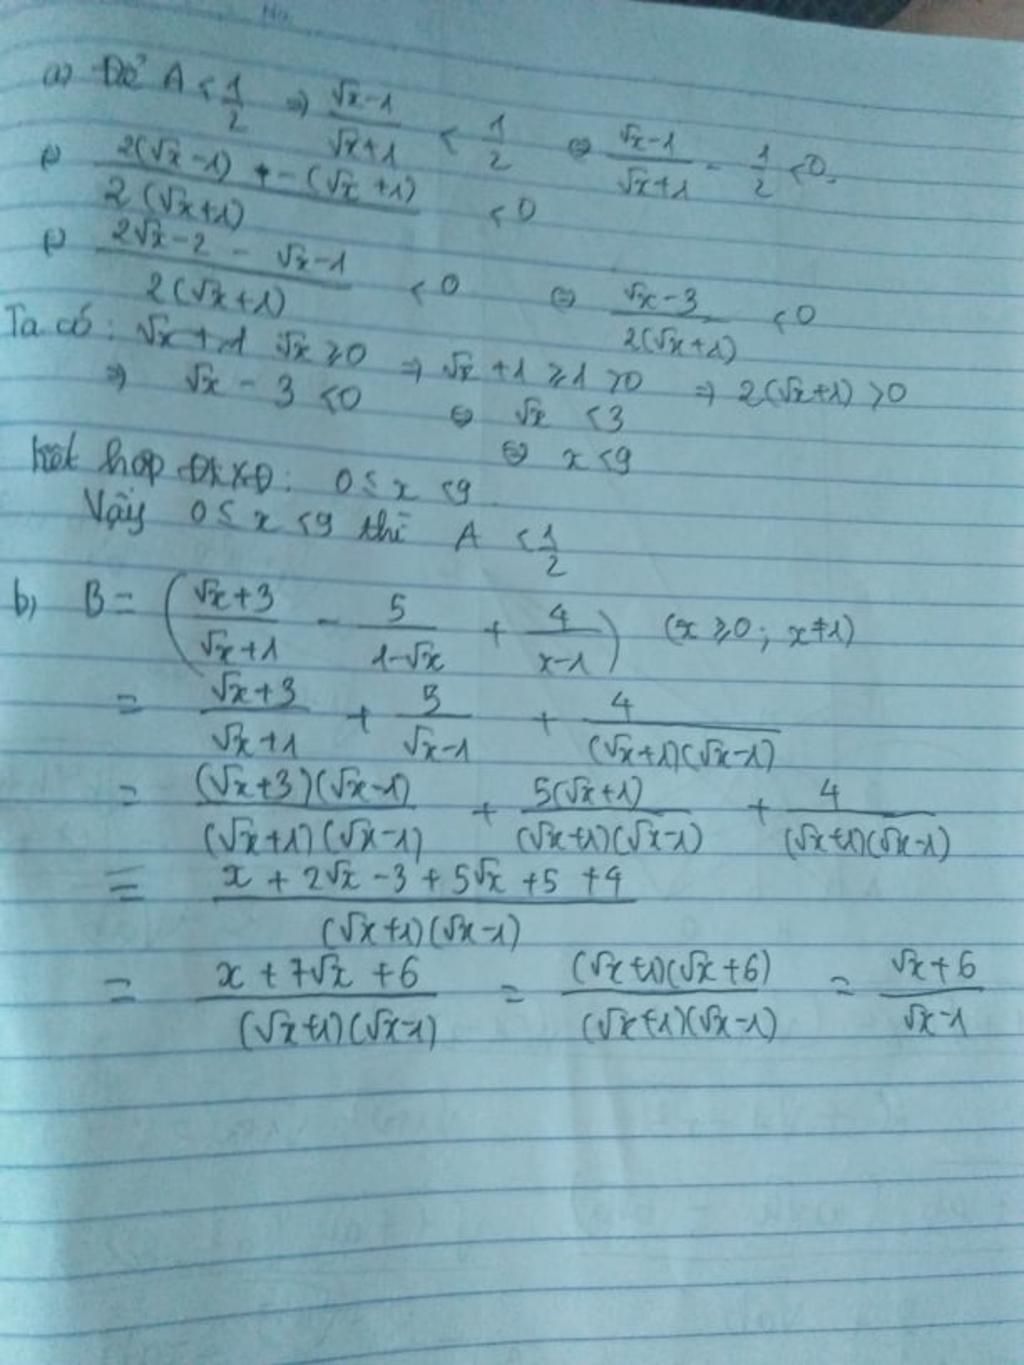 a) Để A < 1/2 ⇒ (√x-1)/(√x+1) < 1/2 ⇔ (√x-1)/(√x+1) - 1/2 < 0.
⇔ (2(√x-1) + -(√x+1))/(2(√x+1)) < 0
⇔ (2√x-2 - √x-1)/(2(√x+1)) < 0 ⇔ (√x-3)/(2(√x+1)) < 0
Ta có: √x+1 √x ≥ 0 ⇒ √x + 1 ≥ 1 > 0 ⇒ 2(√x+1) > 0
⇒ √x - 3 < 0 ⇔ √x < 3
⇔ x < 9
Kết hợp ĐKXĐ: 0 ≤ x < 9
Vậy 0 ≤ x < 9 thì A < 1/2
b) B = ((√x+3)/(√x+1) - 5/(1-√x) + 4/(x-1)) (x ≥ 0; x ≠ 1)
= (√x+3)/(√x+1) + 5/(√x-1) + 4/((√x+1)(√x-1))
= ((√x+3)(√x-1))/((√x+1)(√x-1)) + (5(√x+1))/((√x+1)(√x-1)) + 4/((√x+1)(√x-1))
= (x + 2√x - 3 + 5√x + 5 + 4)/((√x+1)(√x-1))
= (x + 7√x + 6)/((√x+1)(√x-1)) = ((√x+1)(√x+6))/((√x+1)(√x-1)) = (√x+6)/(√x-1)